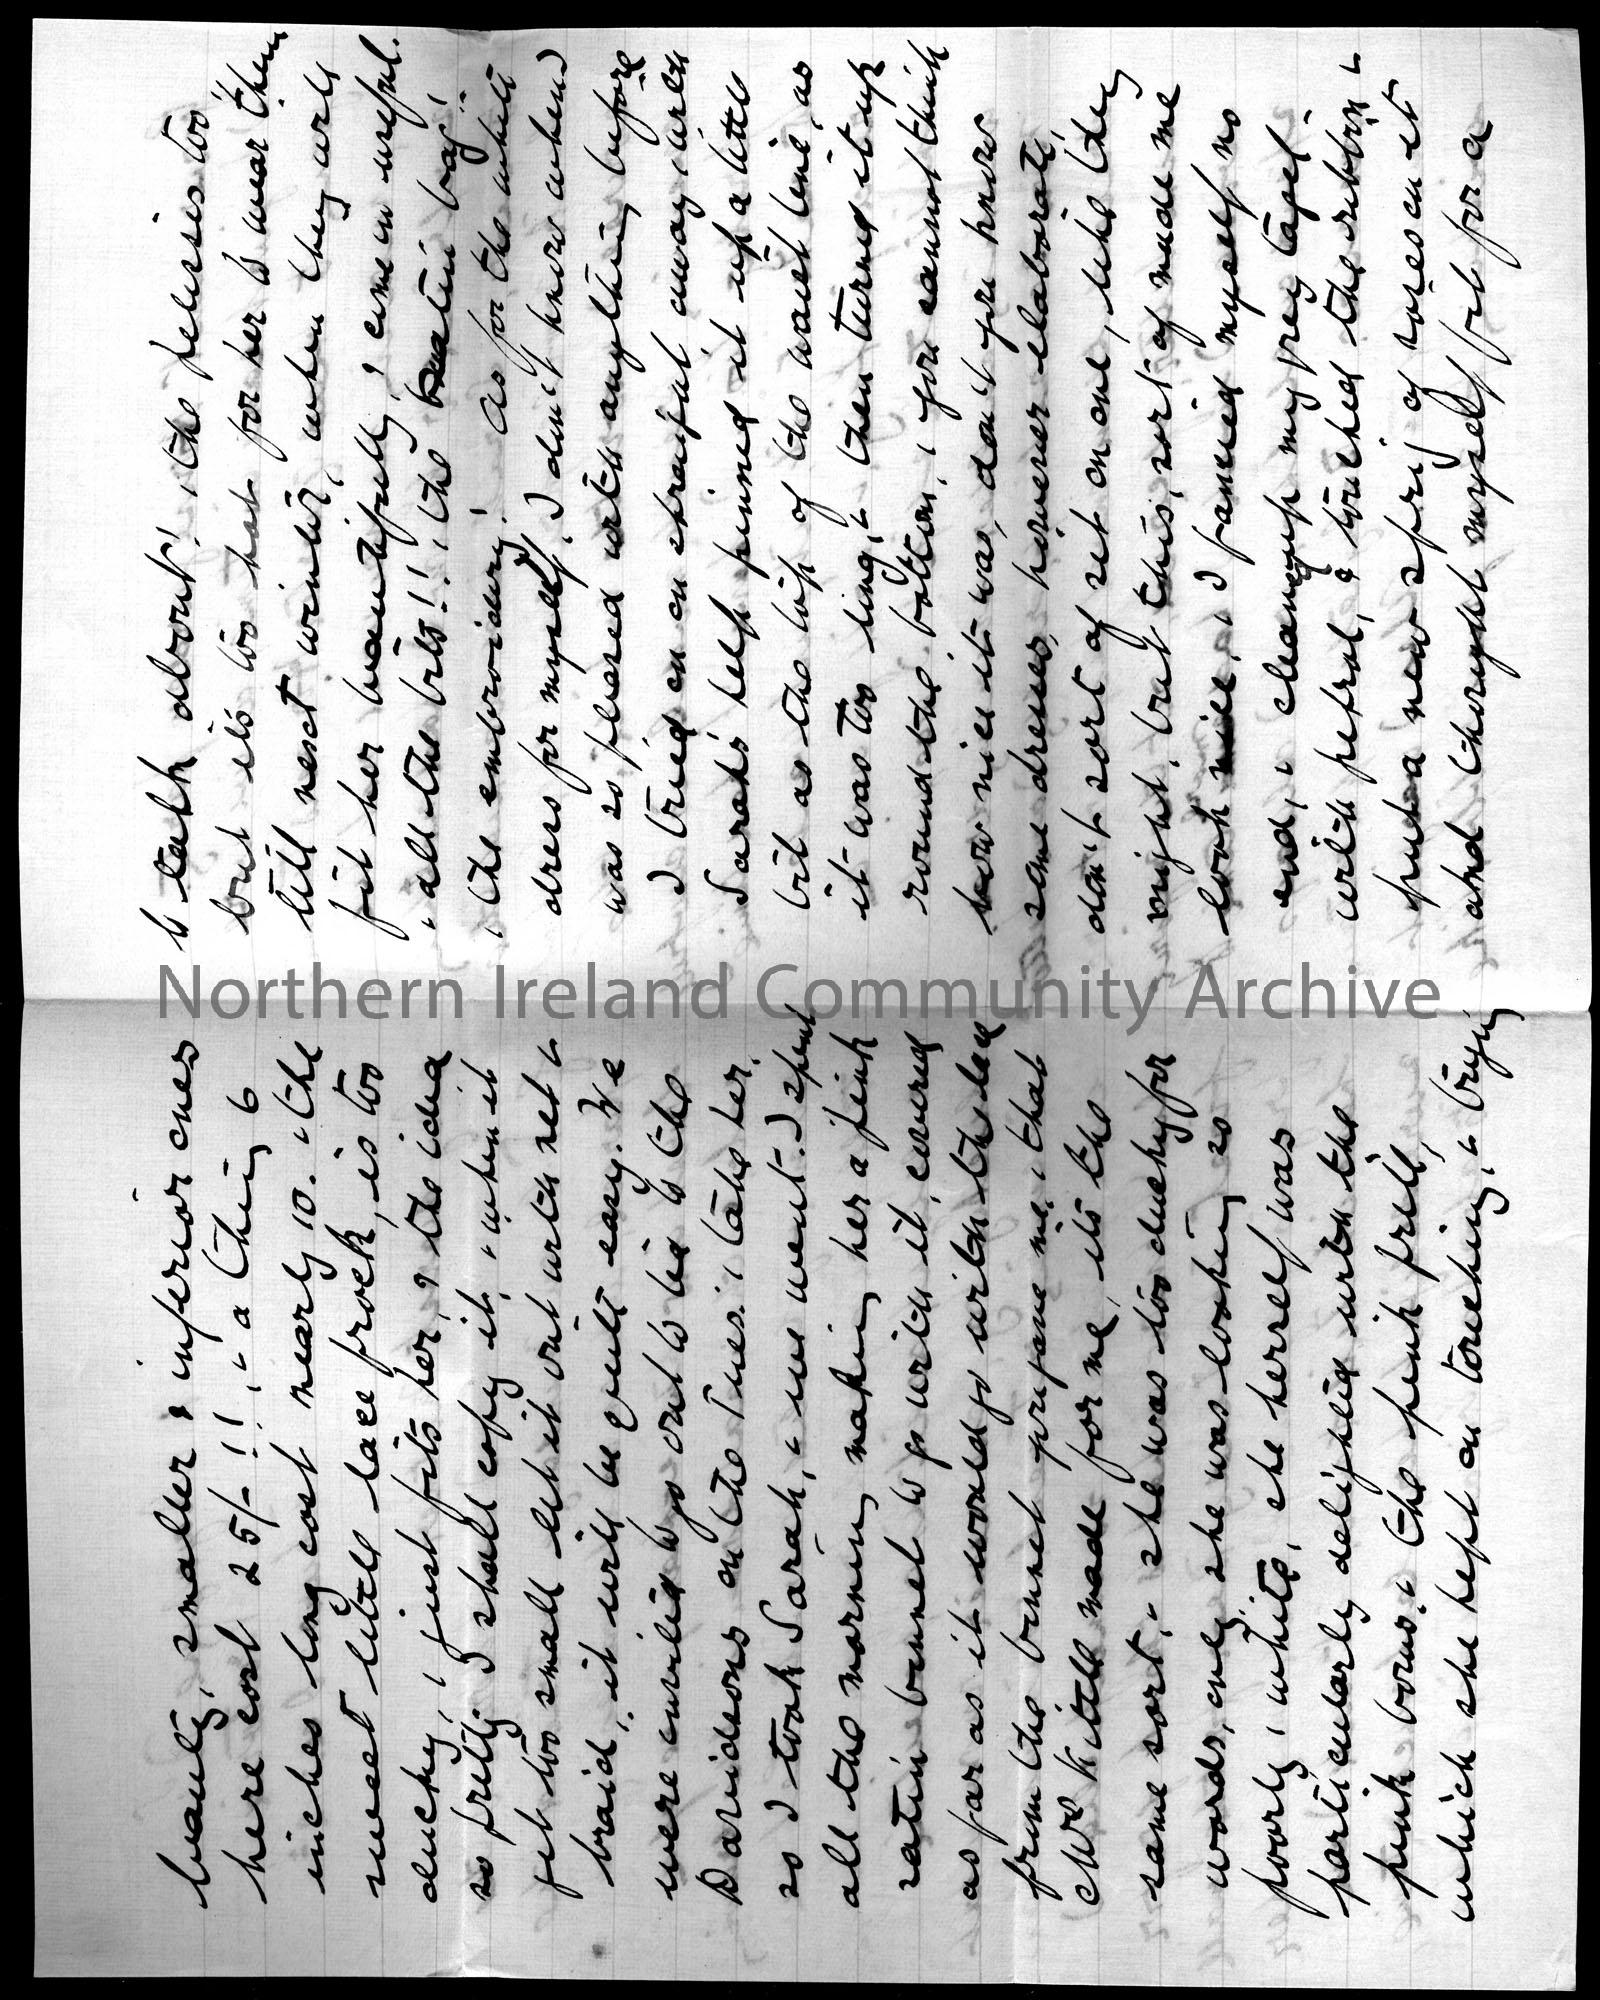 beauty, smaller & inferior ones
here cost 25/-!! & a thing 6
inches long cost nearly 10. & the
sweet little lace frock, is too
ducky, & just fits her, & the idea
so pretty I shall copy it, & when it
get too small let it out with net &
braid, & it will be quite easy. We
were invited to go out to tea to the
Davidsons on the Tues: & take her.
so I took Sarah, & we went. I spent
all the morning making her a pink
satin bonnet to go with it, covered
as far as it would go with the lace
from the bonnet you gave me, & that
Kitte made for me, it's the
same sort, & she was too duchy for
words, only she was looking so
poorly & white, she herself was
particularly delighted with the
pink bows, & the pink frill,
which she kept on touching, & trying
to talk about! & the pelisses too!
but it's too hot for her to wear them
till next winter, when they will
fit her beautifully, & come in useful.
& all the bits!! & the satin bag!
& the embroidery! As for the white
dress for myself, I don't know when I
was so pleased with anything before
I tried on on straight away, with
Sarah's help pinned it up a little
bit at the top of the waist line, as
it was too long, & then turned it up
round the bottom, & you cannot think
how nice it was, don't you know
some dresses, however elaborate,
don't sort of sit on one, like they
might, but this, sort of made me
look nice, & I fancied myself no
end, & cleaned up my grey tagel
with petrol, & touched the ribbon &
put a new spray of roses on it
and thought myself fit for a
Northern Ireland Community Archive